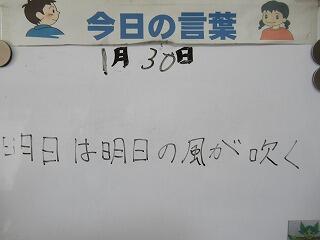 今日の言葉
1月30日
明日は明日の風が吹く